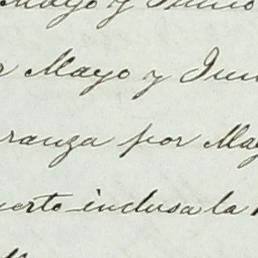 Mayo y Junio
r Mayo y Jun
ranza por May
uerto inclusa la